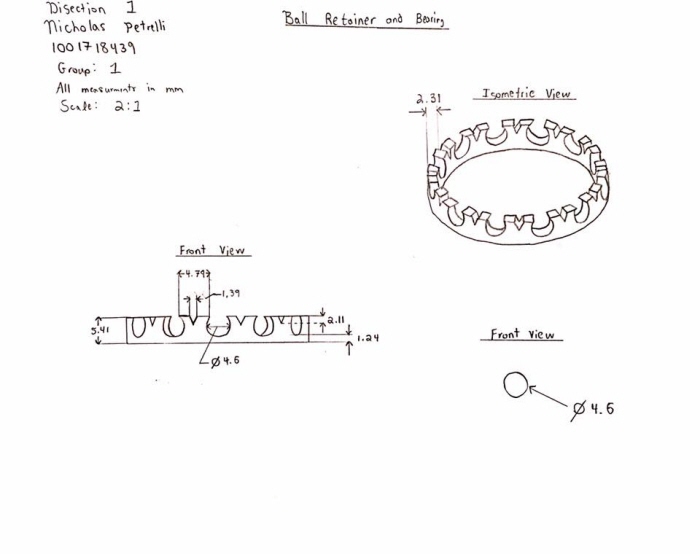 Disection 1
Nicholas Petrelli
1001718439
Group: 1
All measurments in mm
Scale: 2:1
Ball Retainer and Bearing
Isometric View
2.31
Front View
4.79
1.39
5.41
2.11
1.24
Ø 4.6
Front View
Ø 4.6